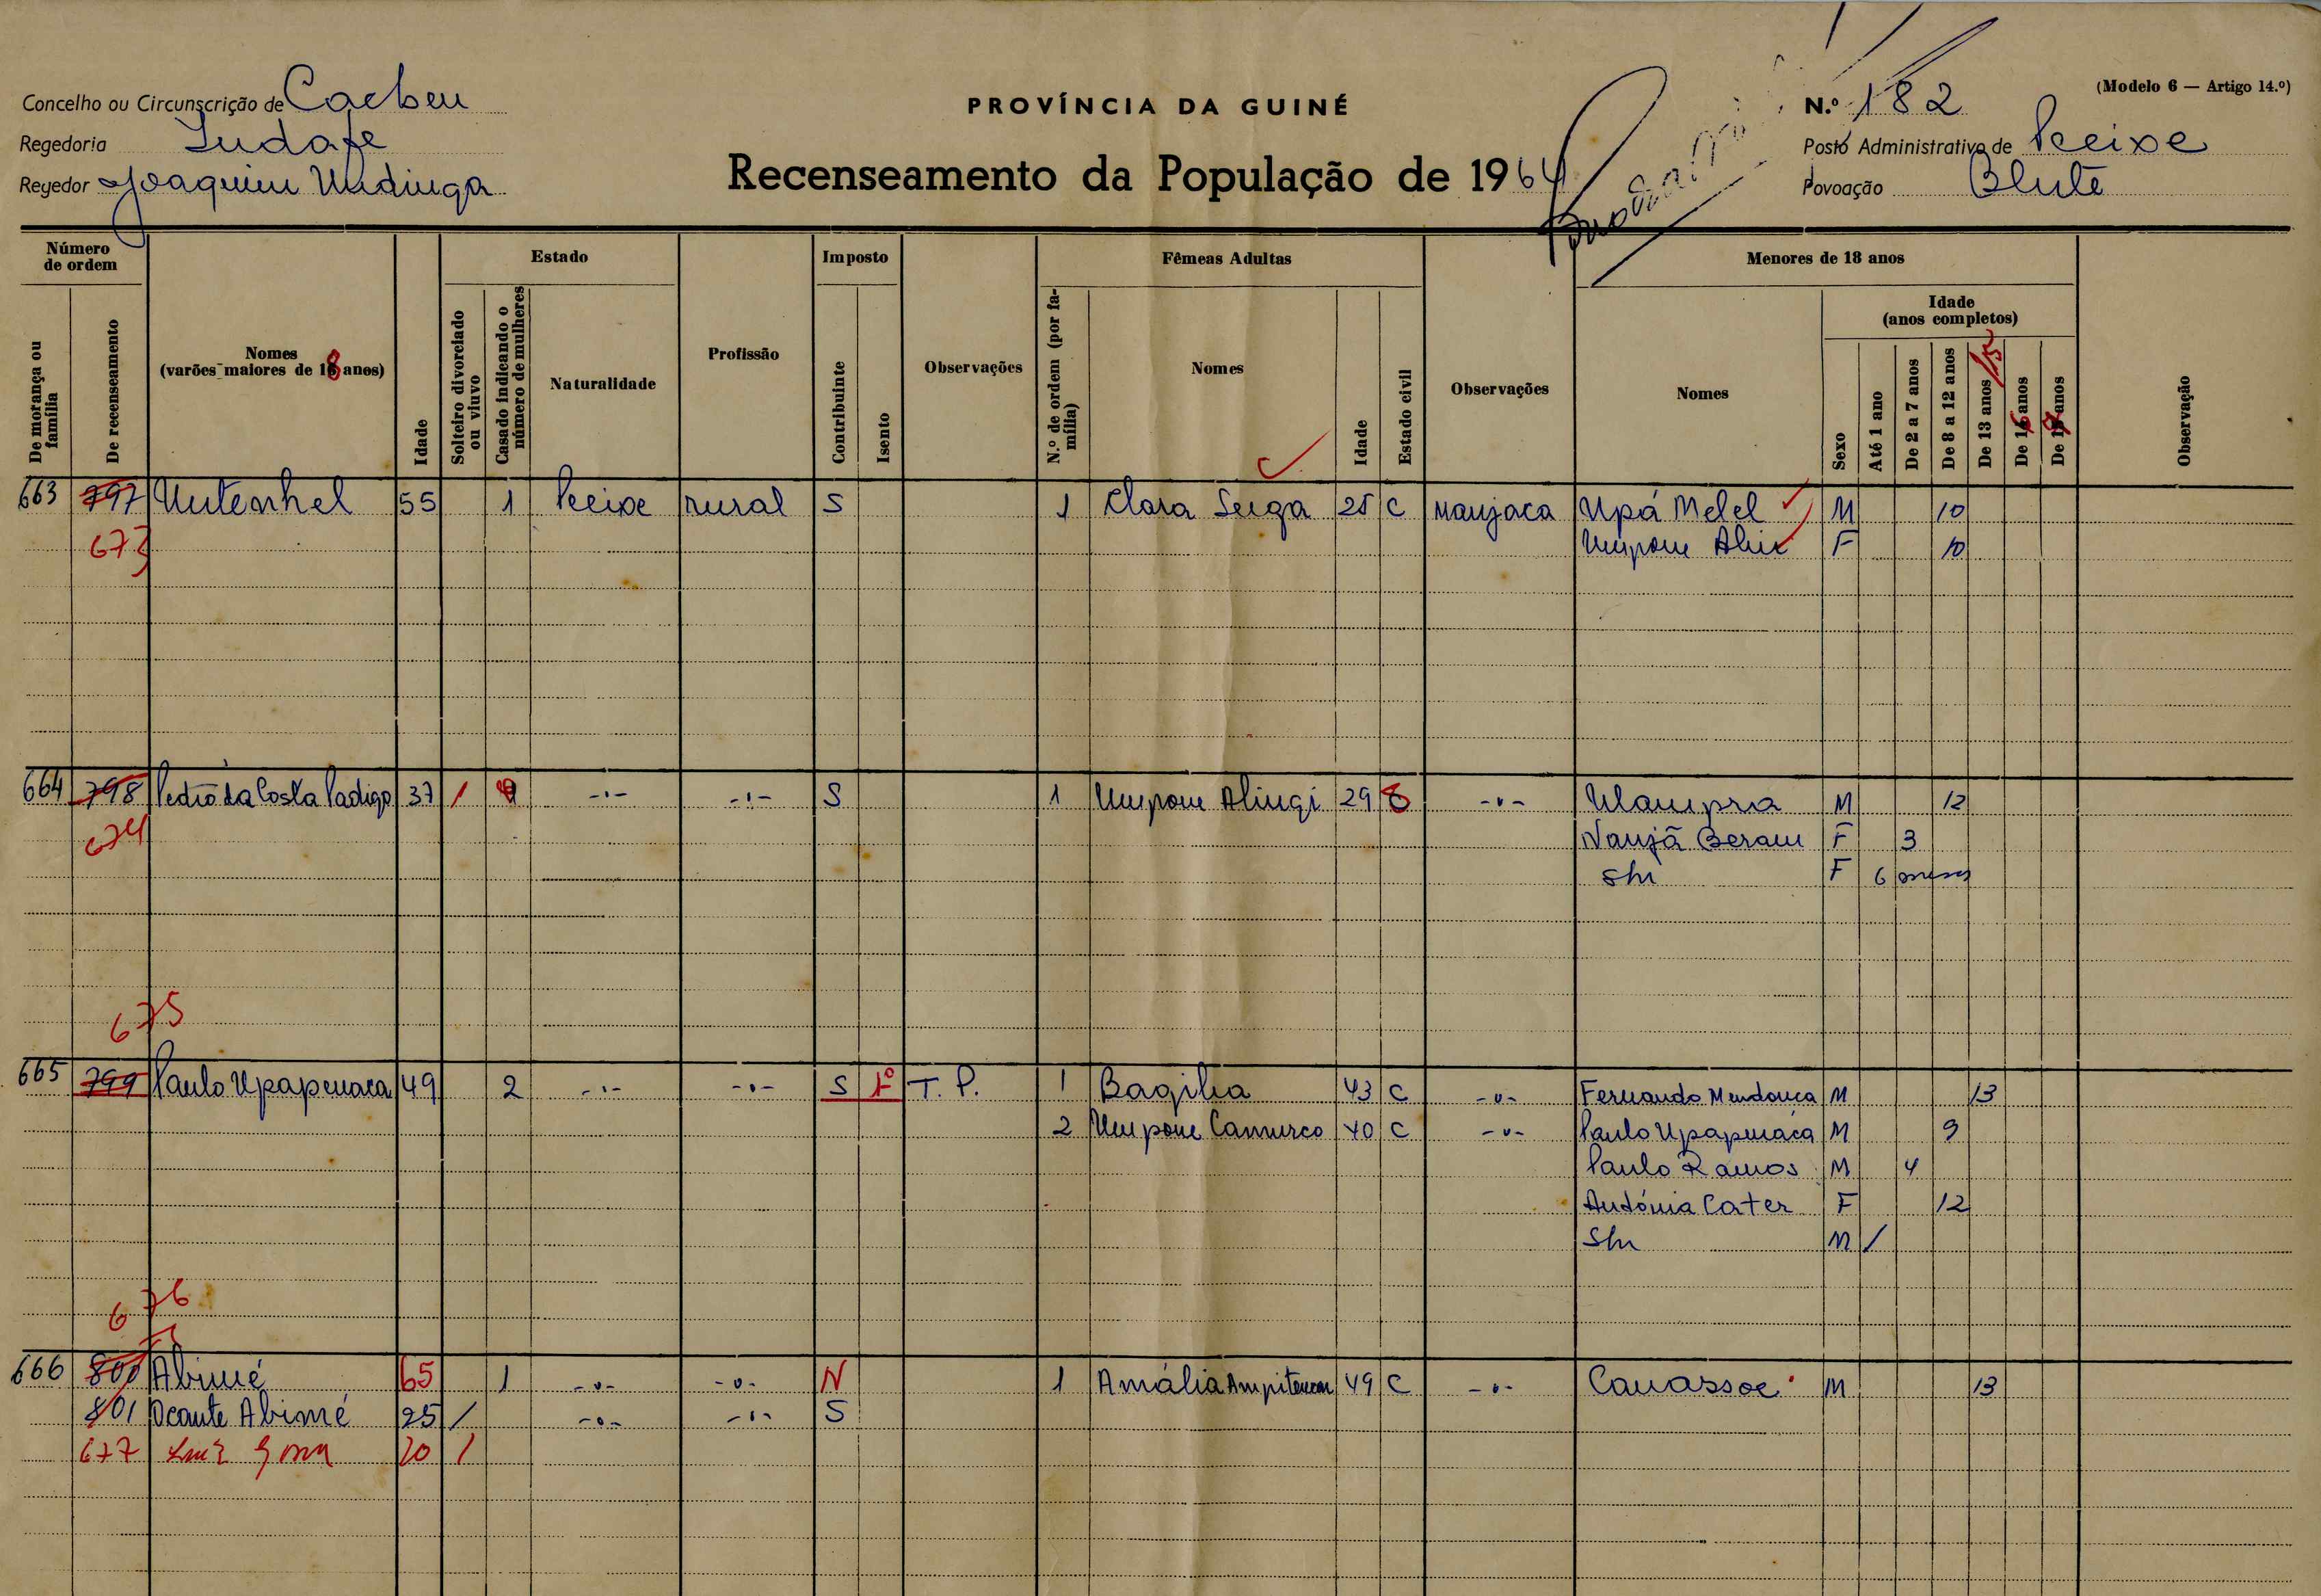 (Modelo 6 — Artigo 14.º)
Concelho ou Circunscrição de Cacheu
PROVÍNCIA DA GUINÉ
N.º 182
Regedoria
Posto Administrativo de Pecixe
Regedor Joaquim Undinga
Recenseamento da População de 1964
Povoação Blute
Número de ordem
Estado
Imposto
Fêmeas Adultas
Menores de 18 anos
Idade
(anos completos)
De morança ou família
De recenseamento
Nomes
(varões maiores de 18 anos)
Idade
Solteiro divorciado ou viuvo
Casado indicando o número de mulheres
Naturalidade
Profissão
Contribuinte
Isento
Observações
N.º de ordem (por família)
Nomes
Idade
Estado civil
Observações
Nomes
Sexo
Até 1 ano
De 2 a 7 anos
De 8 a 12 anos
De 13 anos 15
De 16 anos
De 17 anos
Observação
663 797 Untenhel 55 1 Pecixe rural S 1 Clara Seiga 25 C manjaca Upá Melel M 10
673 Umpone F 10
664 798 Pedro da Costa 37 / -"- -"- S 1 Umpone Alingi 29 -"- Ulampra M 12
674 Nanjã Beram F 3
Shi F 6 meses
675
665 799 Paulo Upapemaca 49 2 -"- -"- S T. P. 1 Bagilha 43 C -"- Fernando Mendonça M 13
2 Umpone Camurco 40 C -"- Paulo Upapemaca M 9
Paulo Ramos M 4
António Cater F 12
Shi M /
676
666 800 Abimé 65 1 -"- -"- N 1 Amália 49 C -"- Canassoe M 13
801 Ocante Abimé 25 / -"- -"- S
677 20 /